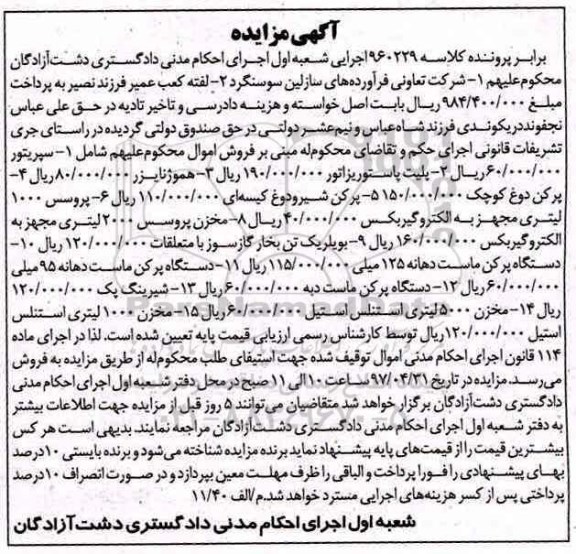 آگهی مزایده
برابر پرونده کلاسه ۹۶۰۲۲۹ اجرایی شعبه اول اجرای احکام مدنی دادگستری دشت‌آزادگان
محکوم‌علیهم ۱- شرکت تعاونی فرآورده‌های سازلین سوسنگرد ۲- لفته کعب عمیر فرزند نصیر به پرداخت
مبلغ ۹۸۴/۴۰۰/۰۰۰ ریال بابت اصل خواسته و هزینه دادرسی و تاخیر تادیه در حق علی عباس
نجفوند دریکوندی فرزند شاه عباس و نیم‌عشر دولتی در حق صندوق دولتی گردیده در راستای جری
تشریفات قانونی اجرای حکم و تقاضای محکوم‌له مبنی بر فروش اموال محکوم‌علیهم شامل ۱- سپریتور
۶۰/۰۰۰/۰۰۰ ریال ۲- پلیت پاستوریزاتور ۱۹۰/۰۰۰/۰۰۰ ریال ۳- هموژنایزر ۸۰/۰۰۰/۰۰۰ ریال ۴-
پرکن دوغ کوچک ۱۵۰/۰۰۰/۰۰۰ ۵- پرکن شیرودوغ کیسه‌ای ۱۱۰/۰۰۰/۰۰۰ ریال ۶- پروسس ۱۰۰۰
لیتری مجهز به الکتروگیربکس ۴۰/۰۰۰/۰۰۰ ریال ۸- مخزن پروسس ۲۰۰۰ لیتری مجهز به
الکتروگیربکس ۱۶۰/۰۰۰/۰۰۰ ریال ۹- بویلریک تن بخار گازسوز با متعلقات ۱۲۰/۰۰۰/۰۰۰ ریال ۱۰-
دستگاه پرکن ماست دهانه ۱۲۵ میلی ۱۱۵/۰۰۰/۰۰۰ ریال ۱۱- دستگاه پرکن ماست دهانه ۹۵ میلی
۶۰/۰۰۰/۰۰۰ ریال ۱۲- دستگاه پرکن ماست دبه ۶۰/۰۰۰/۰۰۰ ریال ۱۳- شیرینگ پک ۱۲۰/۰۰۰/۰۰۰
ریال ۱۴- مخزن ۵۰۰۰ لیتری استنلس استیل ۶۰/۰۰۰/۰۰۰ ریال ۱۵- مخزن ۱۰۰۰۰ لیتری استنلس
استیل ۱۲۰/۰۰۰/۰۰۰ ریال توسط کارشناس رسمی ارزیابی قیمت پایه تعیین شده است. لذا در اجرای ماده
۱۱۴ قانون اجرای احکام مدنی اموال توقیف شده جهت استیفای طلب محکوم‌له از طریق مزایده به فروش
می‌رسد. مزایده در تاریخ ۹۷/۰۴/۳۱ ساعت ۱۰ الی ۱۱ صبح در محل دفتر شعبه اول اجرای احکام مدنی
دادگستری دشت‌آزادگان برگزار خواهد شد. متقاضیان می‌توانند ۵ روز قبل از مزایده جهت اطلاعات بیشتر
به دفتر شعبه اول اجرای احکام مدنی دادگستری دشت‌آزادگان مراجعه نمایند. بدیهی است هر کس
بیشترین قیمت را از قیمت‌های پایه پیشنهاد نماید برنده مزایده شناخته می‌شود و برنده بایستی ۱۰ درصد
بهای پیشنهادی را فورا پرداخت و الباقی را ظرف مهلت معین بپردازد و در صورت انصراف ۱۰ درصد
پرداختی پس از کسر هزینه‌های اجرایی مسترد خواهد شد. م/الف ۱۱/۴۰
شعبه اول اجرای احکام مدنی دادگستری دشت‌آزادگان